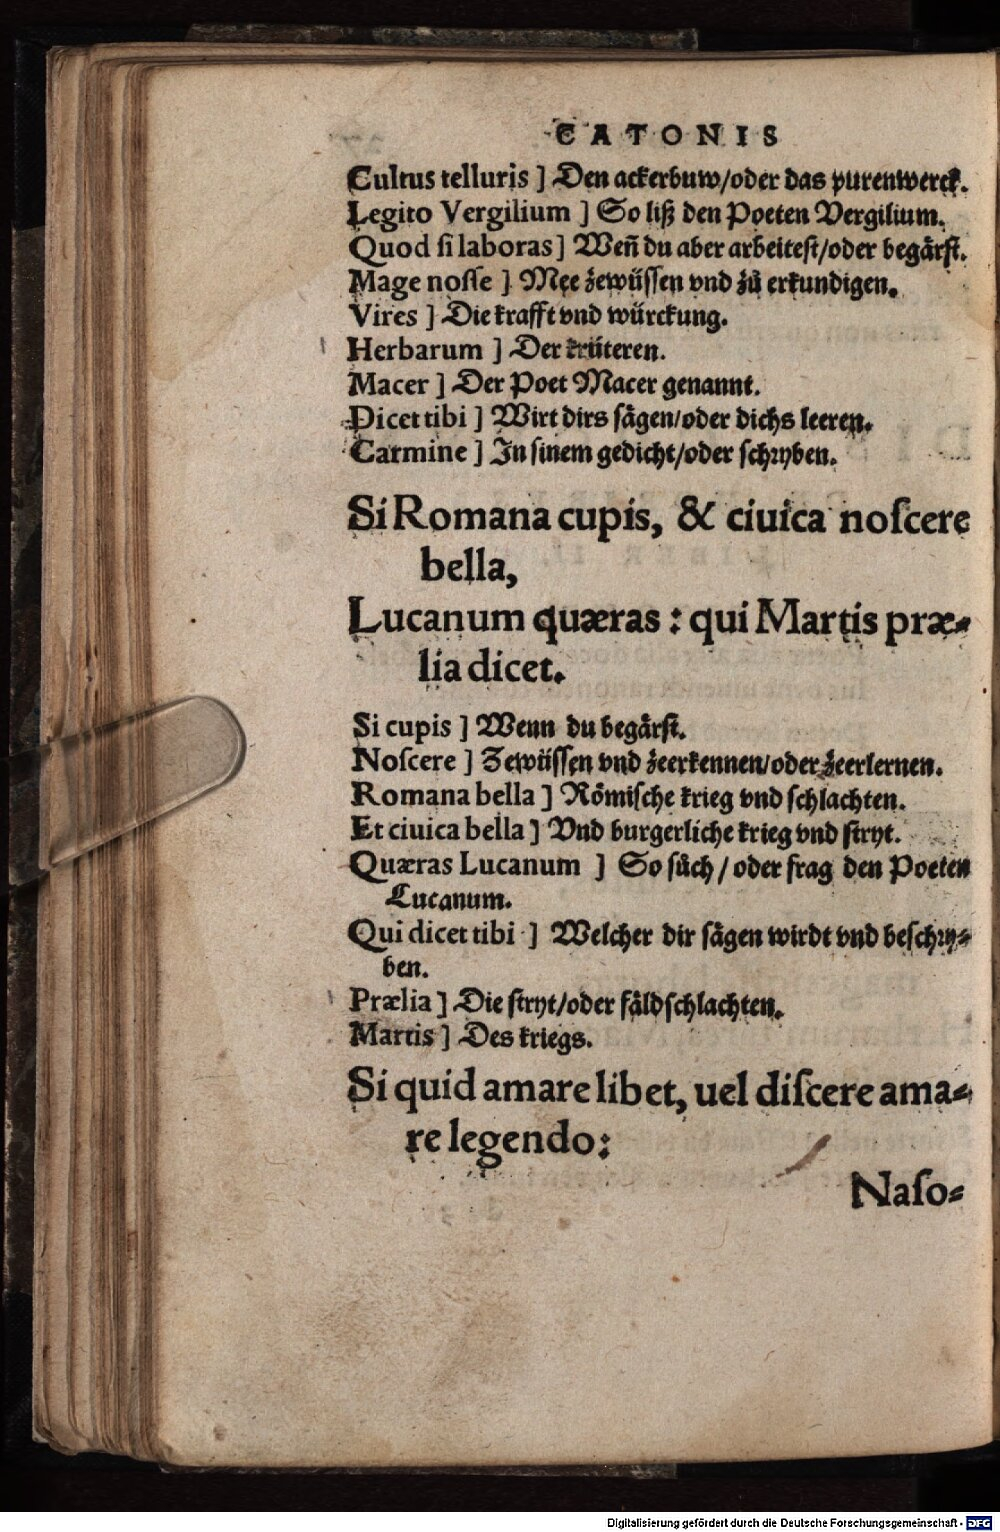 CATONIS
Cultus telluris ] Den ackerbuw/oder das purenwerck.
Legito Vergilium ] So liß den Poeten Vergilium.
Quod ſi laboras ] Weñ du aber arbeiteſt/oder begaͤrſt.
Mage noſſe ] Mee zewuͤſſen vnd zuͦ erkundigen.
Vires ] Die krafft vnd wuͤrckung.
Herbarum ] Der kruͤteren.
Macer ] Der Poet Macer genannt.
Dicet tibi ] Wirt dirs ſaͤgen/oder dichs leeren.
Carmine ] In ſinem gedicht/oder ſchryben.
Si Romana cupis, & ciuica noſcere
bella,
Lucanum quæras : qui Martis præ⸗
lia dicet.
Si cupis ] Wenn du begaͤrſt.
Noſcere ] Zewuͤſſen vnd zeerkennen/oder zeerlernen.
Romana bella ] Roͤmiſche krieg vnd ſchlachten.
Et ciuica bella ] Vnd burgerliche krieg vnd ſtryt.
Quæras Lucanum ] So ſuͤch / oder frag den Poeten
Lucanum.
Qui dicet tibi ] Welcher dir ſaͤgen wirdt vnd beſchry⸗
ben.
Prælia ] Die ſtryt/oder faͤldſchlachten.
Martis ] Des kriegs.
Si quid amare libet, uel diſcere ama⸗
re legendo:
Naſo⸗
Digitalisierung gefördert durch die Deutsche Forschungsgemeinschaft - DFG